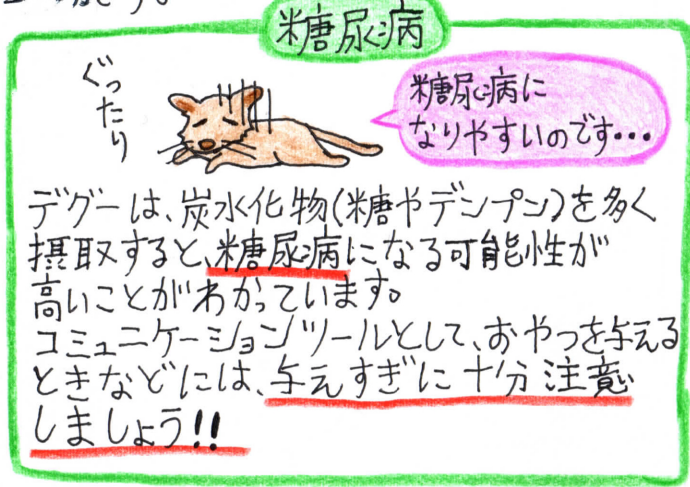 です。
糖尿病
ぐったり
糖尿病に
なりやすいのです・・・
デグーは、炭水化物(糖やデンプン)を多く
摂取すると、糖尿病になる可能性が
高いことがわかっています。
コミュニケーションツールとして、おやつを与える
ときなどには、与えすぎに十分注意
しましょう!!